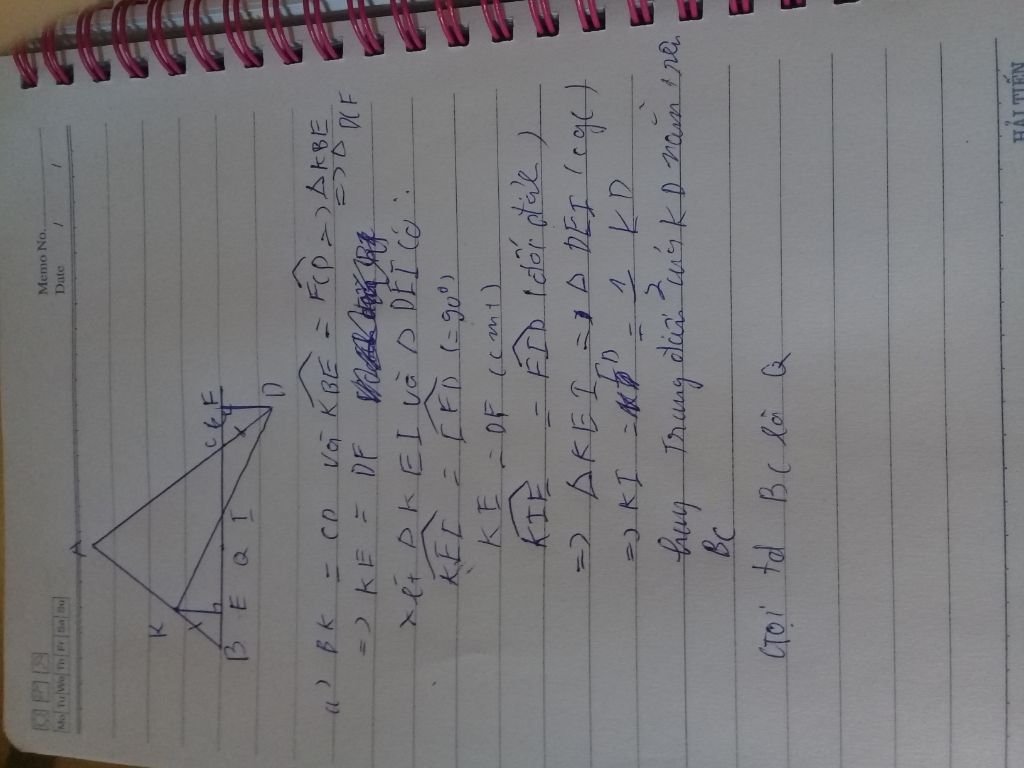 Memo No.
Date / /
Mo Tu We Th Fr Sa Su
A
K
C F
B E Q I
D
a) BK = CD và KBE = FCD => Δ KBE
=> KE = DF => Δ DCF
xét Δ KEI và Δ DFI có:
KEI = IFD (= 90°)
KE = DF (cmt)
KIE = FID (đối đỉnh)
=> Δ KEI = Δ DFI (cgc)
=> KI = ID = 1/2 KD
hay Trung điểm của KD nằm trên
BC
Gọi td BC là Q
HẢI TIẾN